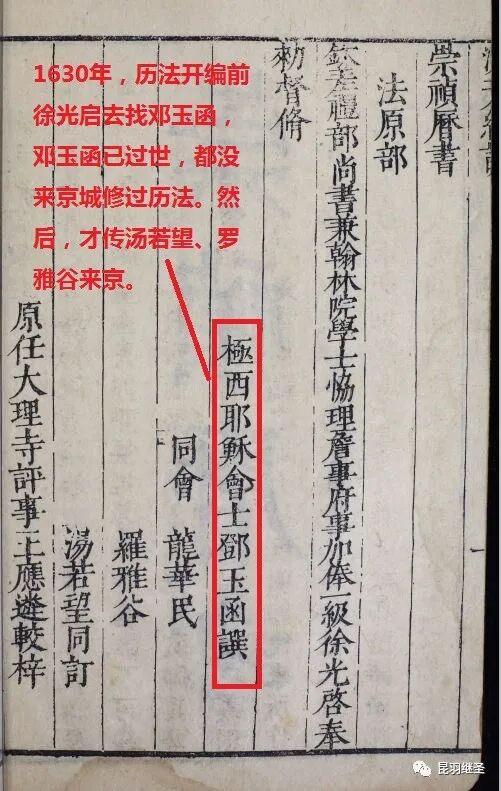 1630年，历法开编前
徐光启去找邓玉函，
邓玉函已过世，都没
来京城修过历法。然
后，才传汤若望、罗
雅谷来京。
崇禎曆書
法原部
欽差禮部尚書兼翰林院學士協理詹事府事加俸一級徐光啓奉
勑督脩
極西耶穌會士鄧玉函譔
同會 龍華民
羅雅谷
湯若望同訂
原任大理寺評事王應遴較梓
昆羽继圣